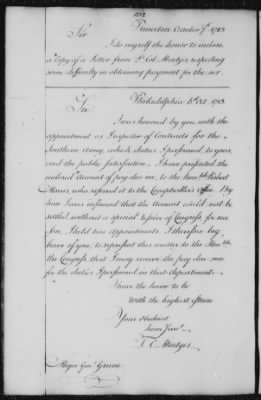 Princeton October 7th 1783
Sir
I do myself the honor to inclose
a Copy of a Letter from Lt Col. Mentges respecting
some difficulty in obtaining payment for the ser
Philadelphia Oct. 1783
Sir
I was honored by you with the
appointment as Inspector of Contracts for the
Southern Army, which duties I performed to your
and the public satisfaction. I have presented the
enclosed Account of pay due me, to the Honble Robert
Morris, who referred it to the Comptroller's Office. By
him I was informed that the Account could not be
settled without a special resolve of Congress for rea
son, I held two Appointments. I therefore beg
leave of you, to represent this matter to the Honble
the Congress, that I may receive the pay due me
for the duties I performed in that department.
I have the honor to be
With the highest esteem
Your Obedient
hum Servt
F. Mentges
Major Genl Greene